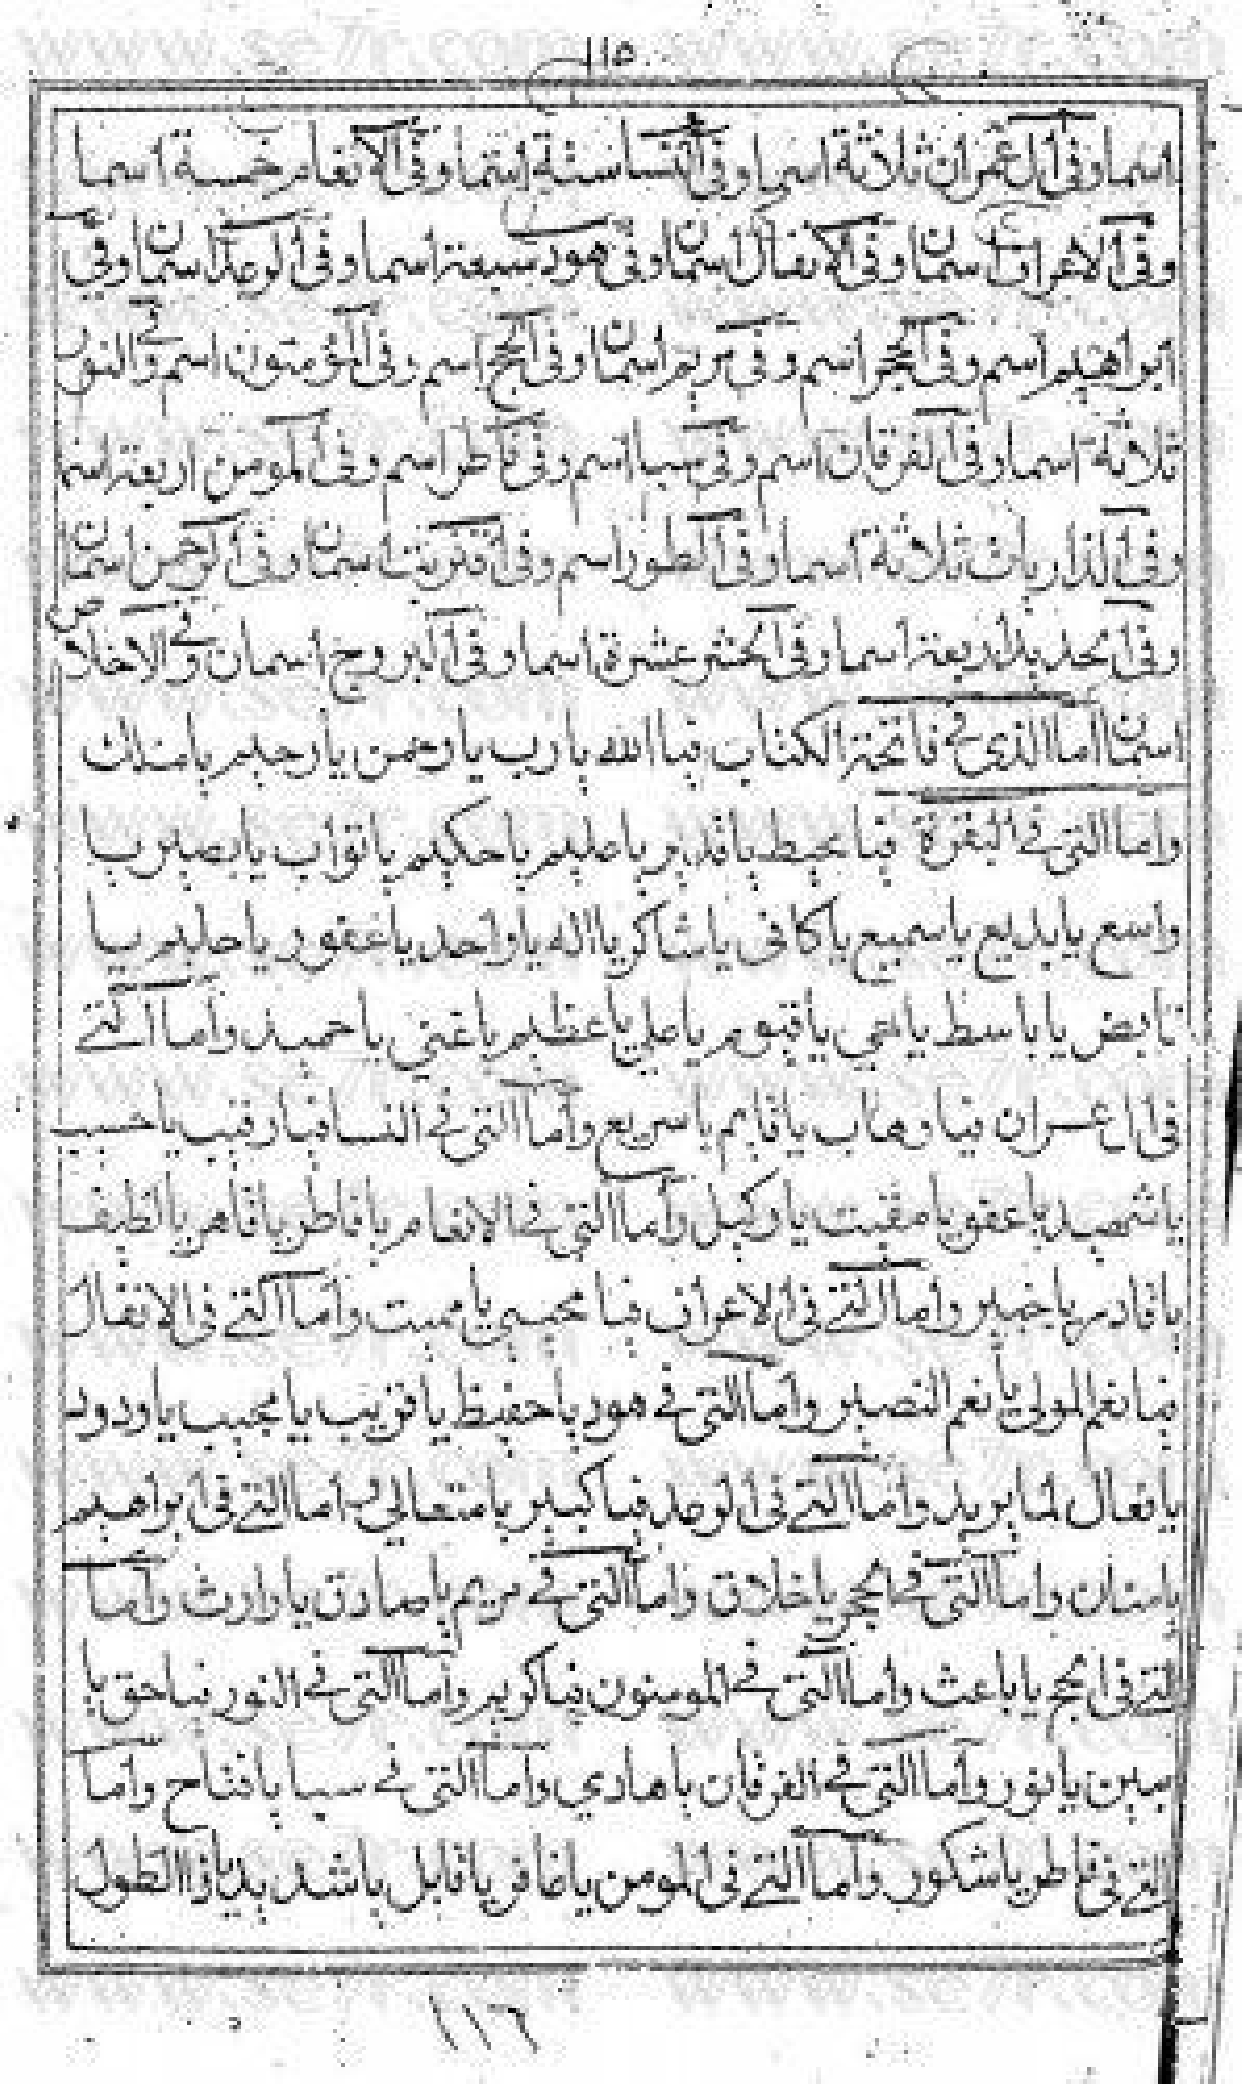 ١١٥
اسما وفى آل عمران ثلاثة اسما وفى النسا ستة اسما وفى الانعام خمسة اسما
وفى الاعراف اسمان وفى الانفال اسمان وفى هود سبعة اسما وفى الرعد اسمان وفي
ابراهيم اسم وفى الحجر اسم وفى مريم اسمان وفى الحج اسم وفى المؤمنون اسم وفي النور
ثلاثة اسما وفى الفرقان اسم وفى سبا اسم وفى فاطر اسم وفى المومن اربعة اسما
وفى الذاريات ثلاثة اسما وفى الطور اسم وفى اقتربت اسمان وفى الرحمن اسمان
وفى الحديد اربعة اسما وفى الحشر عشرة اسما وفى البروج اسمان وفي الاخلاص
اسمان اما الذى في فاتحة الكتاب فيا الله يا رب يا رحمن يا رحيم يا ملك
واما التى في البقرة فيا محيط يا قدير يا عليم يا حكيم يا تواب يا بصير يا
واسع يا بديع يا سميع يا كافى يا شاكر يا اله يا واحد يا غفور يا حليم يا
قابض يا باسط يا حي يا قيوم يا علي يا عظيم يا غني يا حميد واما التي
فى ال عمران فيا وهاب يا قايم يا سريع واما التى في النسا فيا رقيب يا حسيب
يا شهيد يا عفو يا مقيت يا وكيل واما التى في الانعام يا فاطر يا قاهر يا لطيف
يا قادر يا خبير واما التي فى الاعراف فيا محيي يا مميت واما التي فى الانفال
فيا نعم المولى يا نعم النصير واما التى في هود يا حفيظ يا قريب يا مجيب يا ودود
يا فعال لما يريد واما التي فى الرعد فيا كبير يا متعالي واما التي فى ابراهيم
يا منان واما التى في الحجر يا خلاق واما التى في مريم يا صادق يا وارث واما
التي فى الحج يا باعث واما التى في المومنون فيا كريم واما التى في النور فيا حق يا
مبين يا نور واما التى في الفرقان يا هادي واما التى في سبا يا فتاح واما
التي فى فاطر يا شكور واما التي فى المومن يا غافر يا قابل يا شديد يا ذا الطول
١١٦